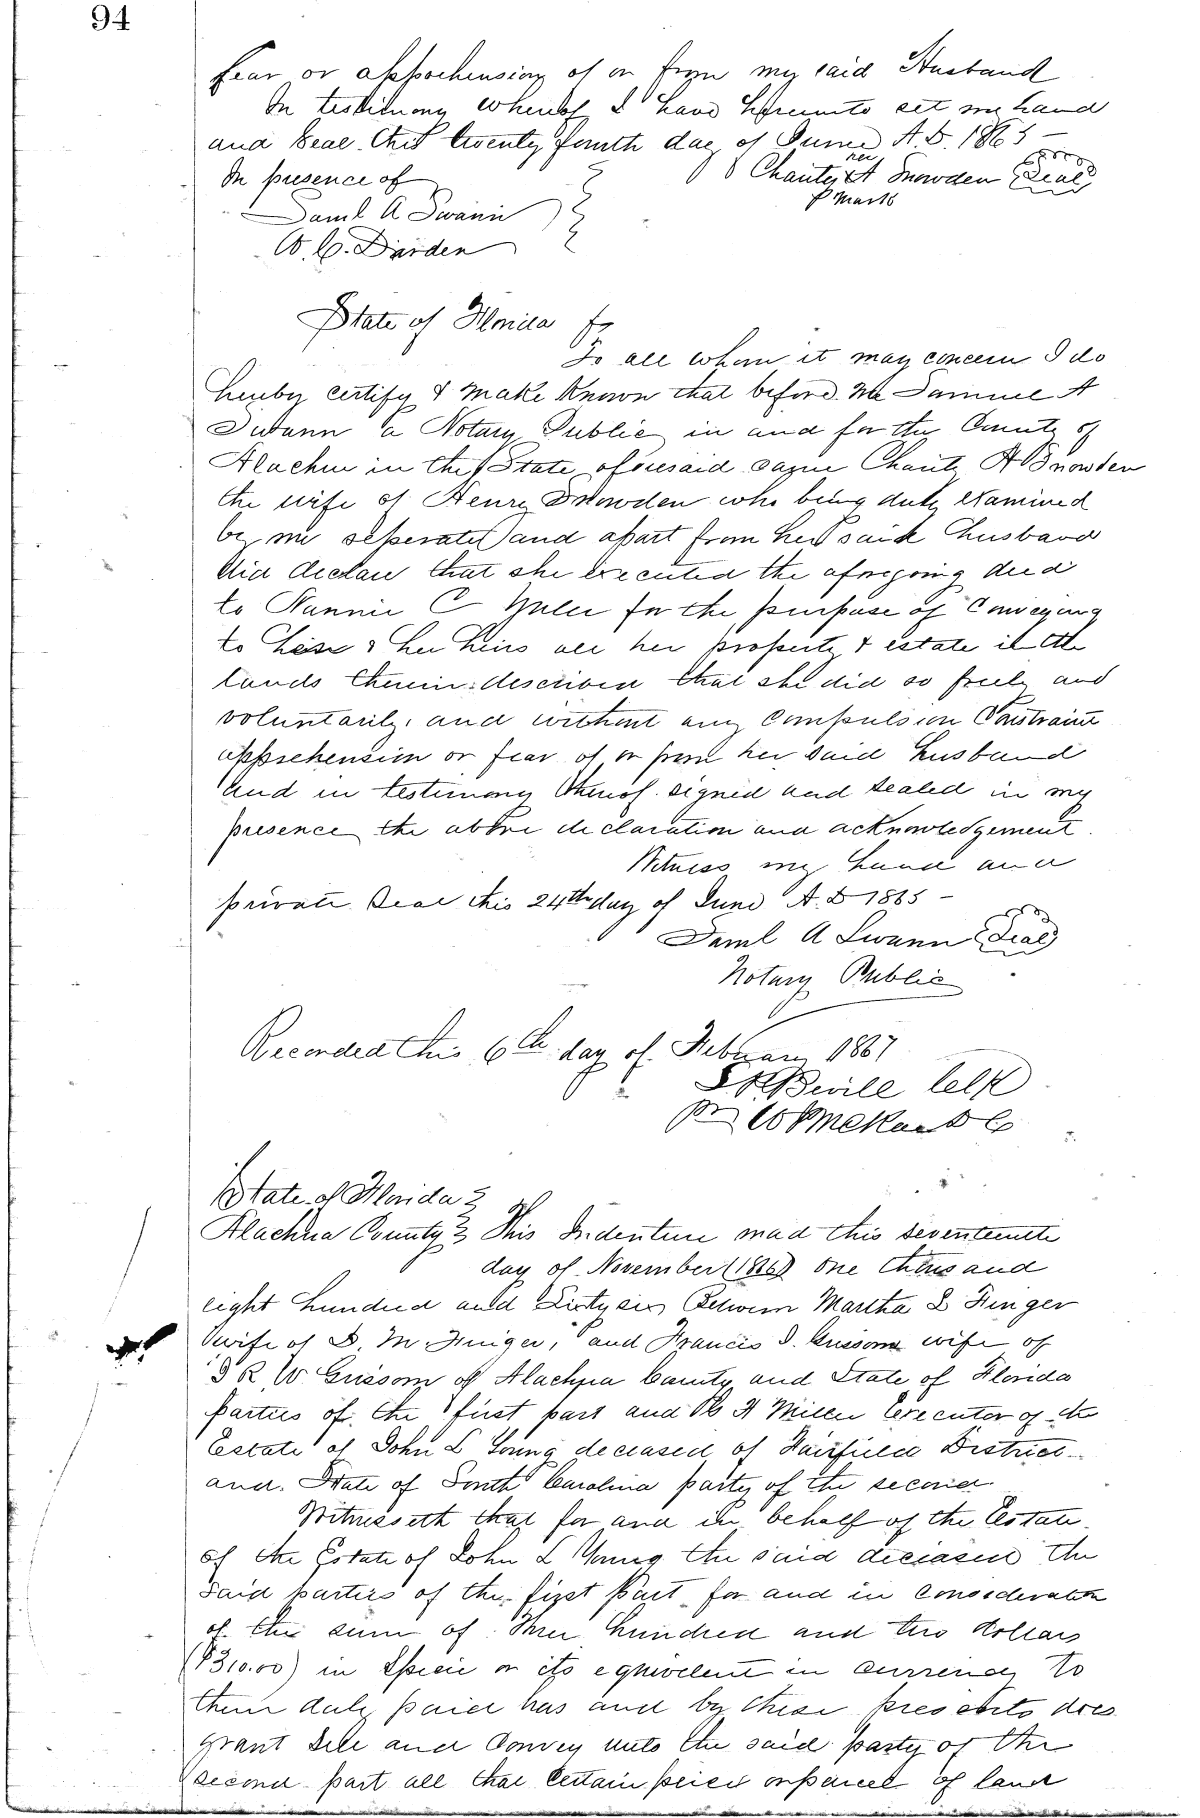 94
fear or apprehension of or from my said Husband
In testimony whereof I have hereunto set my hand
and Seal this twenty fourth day of June A.D. 1865 –
In presence of
her
Charity A Snowden Seal
mark
Saml A Swann
W. C. Darden
State of Florida
To all whom it may concern I do
hereby certify & make known that before me Samuel A
Swann a Notary Public in and for the County of
Alachua in the State aforesaid came Charity A Snowden
the wife of Henry Snowden who being duly examined
by me seperately and apart from her said husband
did declare that she executed the aforegoing deed
to Nannie C for the purpose of Conveying
to her & her heirs all her property & estate in the
lands therein described that she did so freely and
voluntarily, and without any Compulsion Constraint
apprehension or fear of or from her said husband
and in testimony thereof signed and sealed in my
presence the above declaration and acknowledgement.
Witness my hand and
private Seal this 24th day of June A.D 1865 –
Saml A Swann Seal
Notary Public
Recorded this 6th day of February 1867
Bevill Clk
pr D C
State of Florida
Alachua County This Indenture mad this seventeenth
day of November (1866) one thousand
eight hundred and Sixty six Between Martha L Finger
wife of D. M. Finger, and Francis J. Grissom wife of
R. W. Grissom of Alachua County and State of Florida
parties of the first part and H Miller Executor of the
Estate of John L Young deceased of Fairfield District
and State of South Carolina party of the second
Witnesseth that for and in behalf of the Estate
of the Estate of John L Young the said deceased the
said parties of the first part for and in consideration
of the sum of Three hundred and two dollars
($310.00) in Specie or its equivelent in currency to
them duly paid has and by these presents does
grant Sell and Convey unto the said party of the
second part all that Certain peice or parcel of land